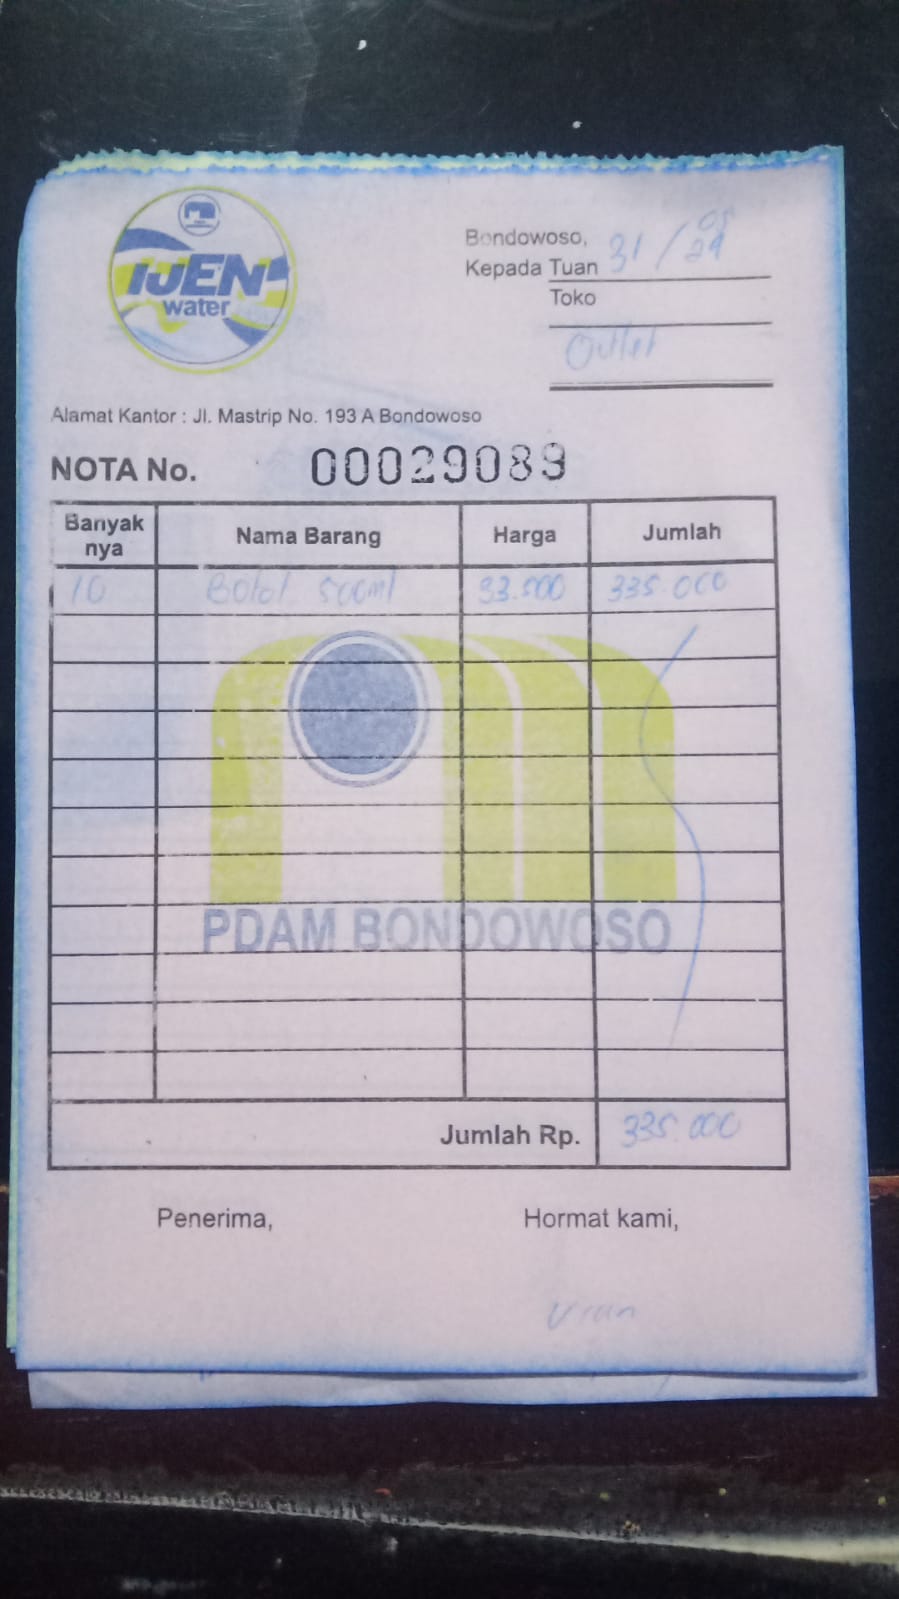 IJEN
water
Bondowoso, 31 / 05
24
Kepada Tuan
Toko
Outlet
Alamat Kantor : Jl. Mastrip No. 193 A Bondowoso
NOTA No. 00029089
Banyak nya Nama Barang Harga Jumlah
10 Botol 500ml 33.500 335.000
PDAM BONDOWOSO
Jumlah Rp. 335.000
Penerima, Hormat kami,